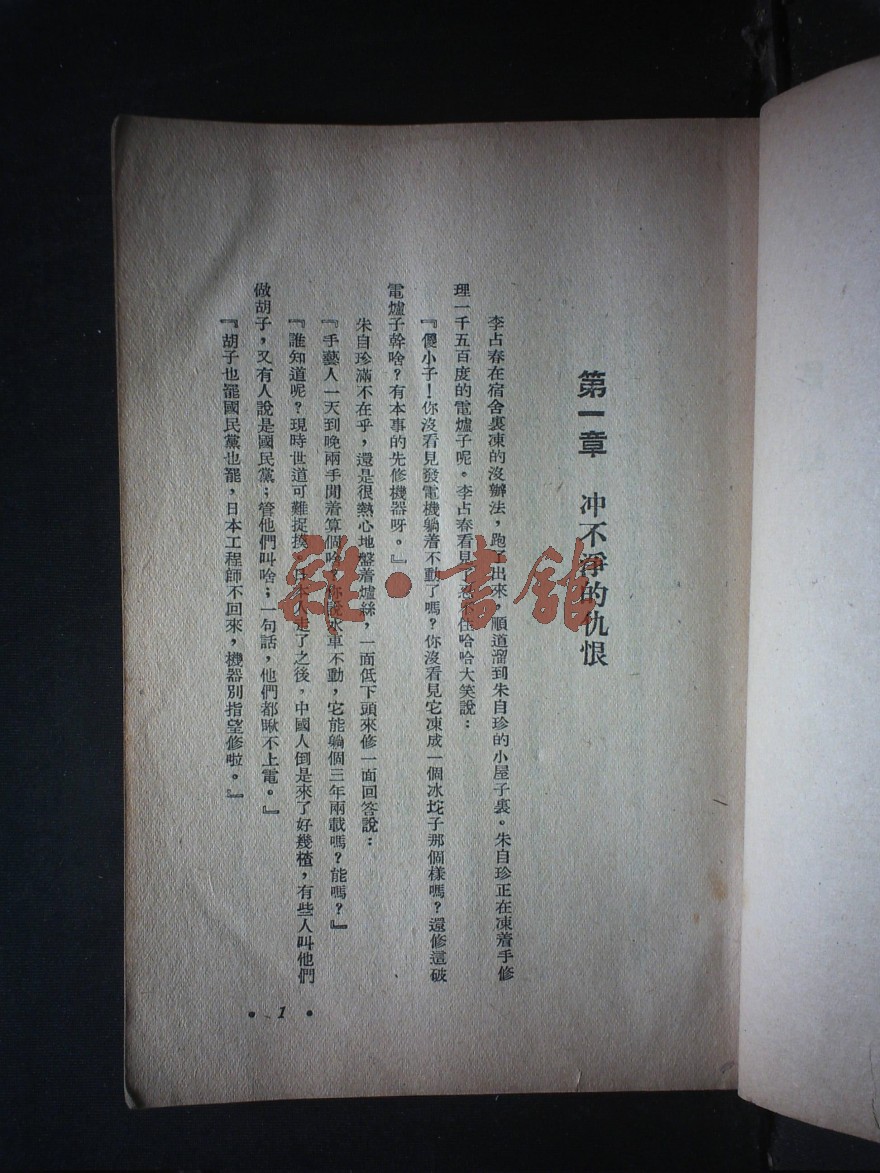 第一章 冲不淨的仇恨
李占春在宿舍裏凍的沒辦法，跑了出來，順道溜到朱自珍的小屋子裏。朱自珍正在凍着手修
理一千五百度的電爐子呢。李占春看見了忍不住哈哈大笑說：
『傻小子！你沒看見發電機躺着不動了嗎？你沒看見它凍成一個冰坨子那個樣嗎？還修這破
電爐子幹啥？有本事的先修機器呀。』
朱自珍滿不在乎，還是很熱心地盤着爐絲，一面低下頭來修一面回答說：
『手藝人一天到晚兩手閒着算個啥？你說水車不動，它能躺個三年兩載嗎？能嗎？』
『誰知道呢？現時世道可難捉摸，日本人走了之後，中國人倒是來了好幾楂，有些人叫他們
做胡子，又有人說是國民黨；管他們叫啥；一句話，他們都瞅不上電。』
『胡子也罷國民黨也罷，日本工程師不回來，機器別指望修啦。』
• 1 •
雜·書館